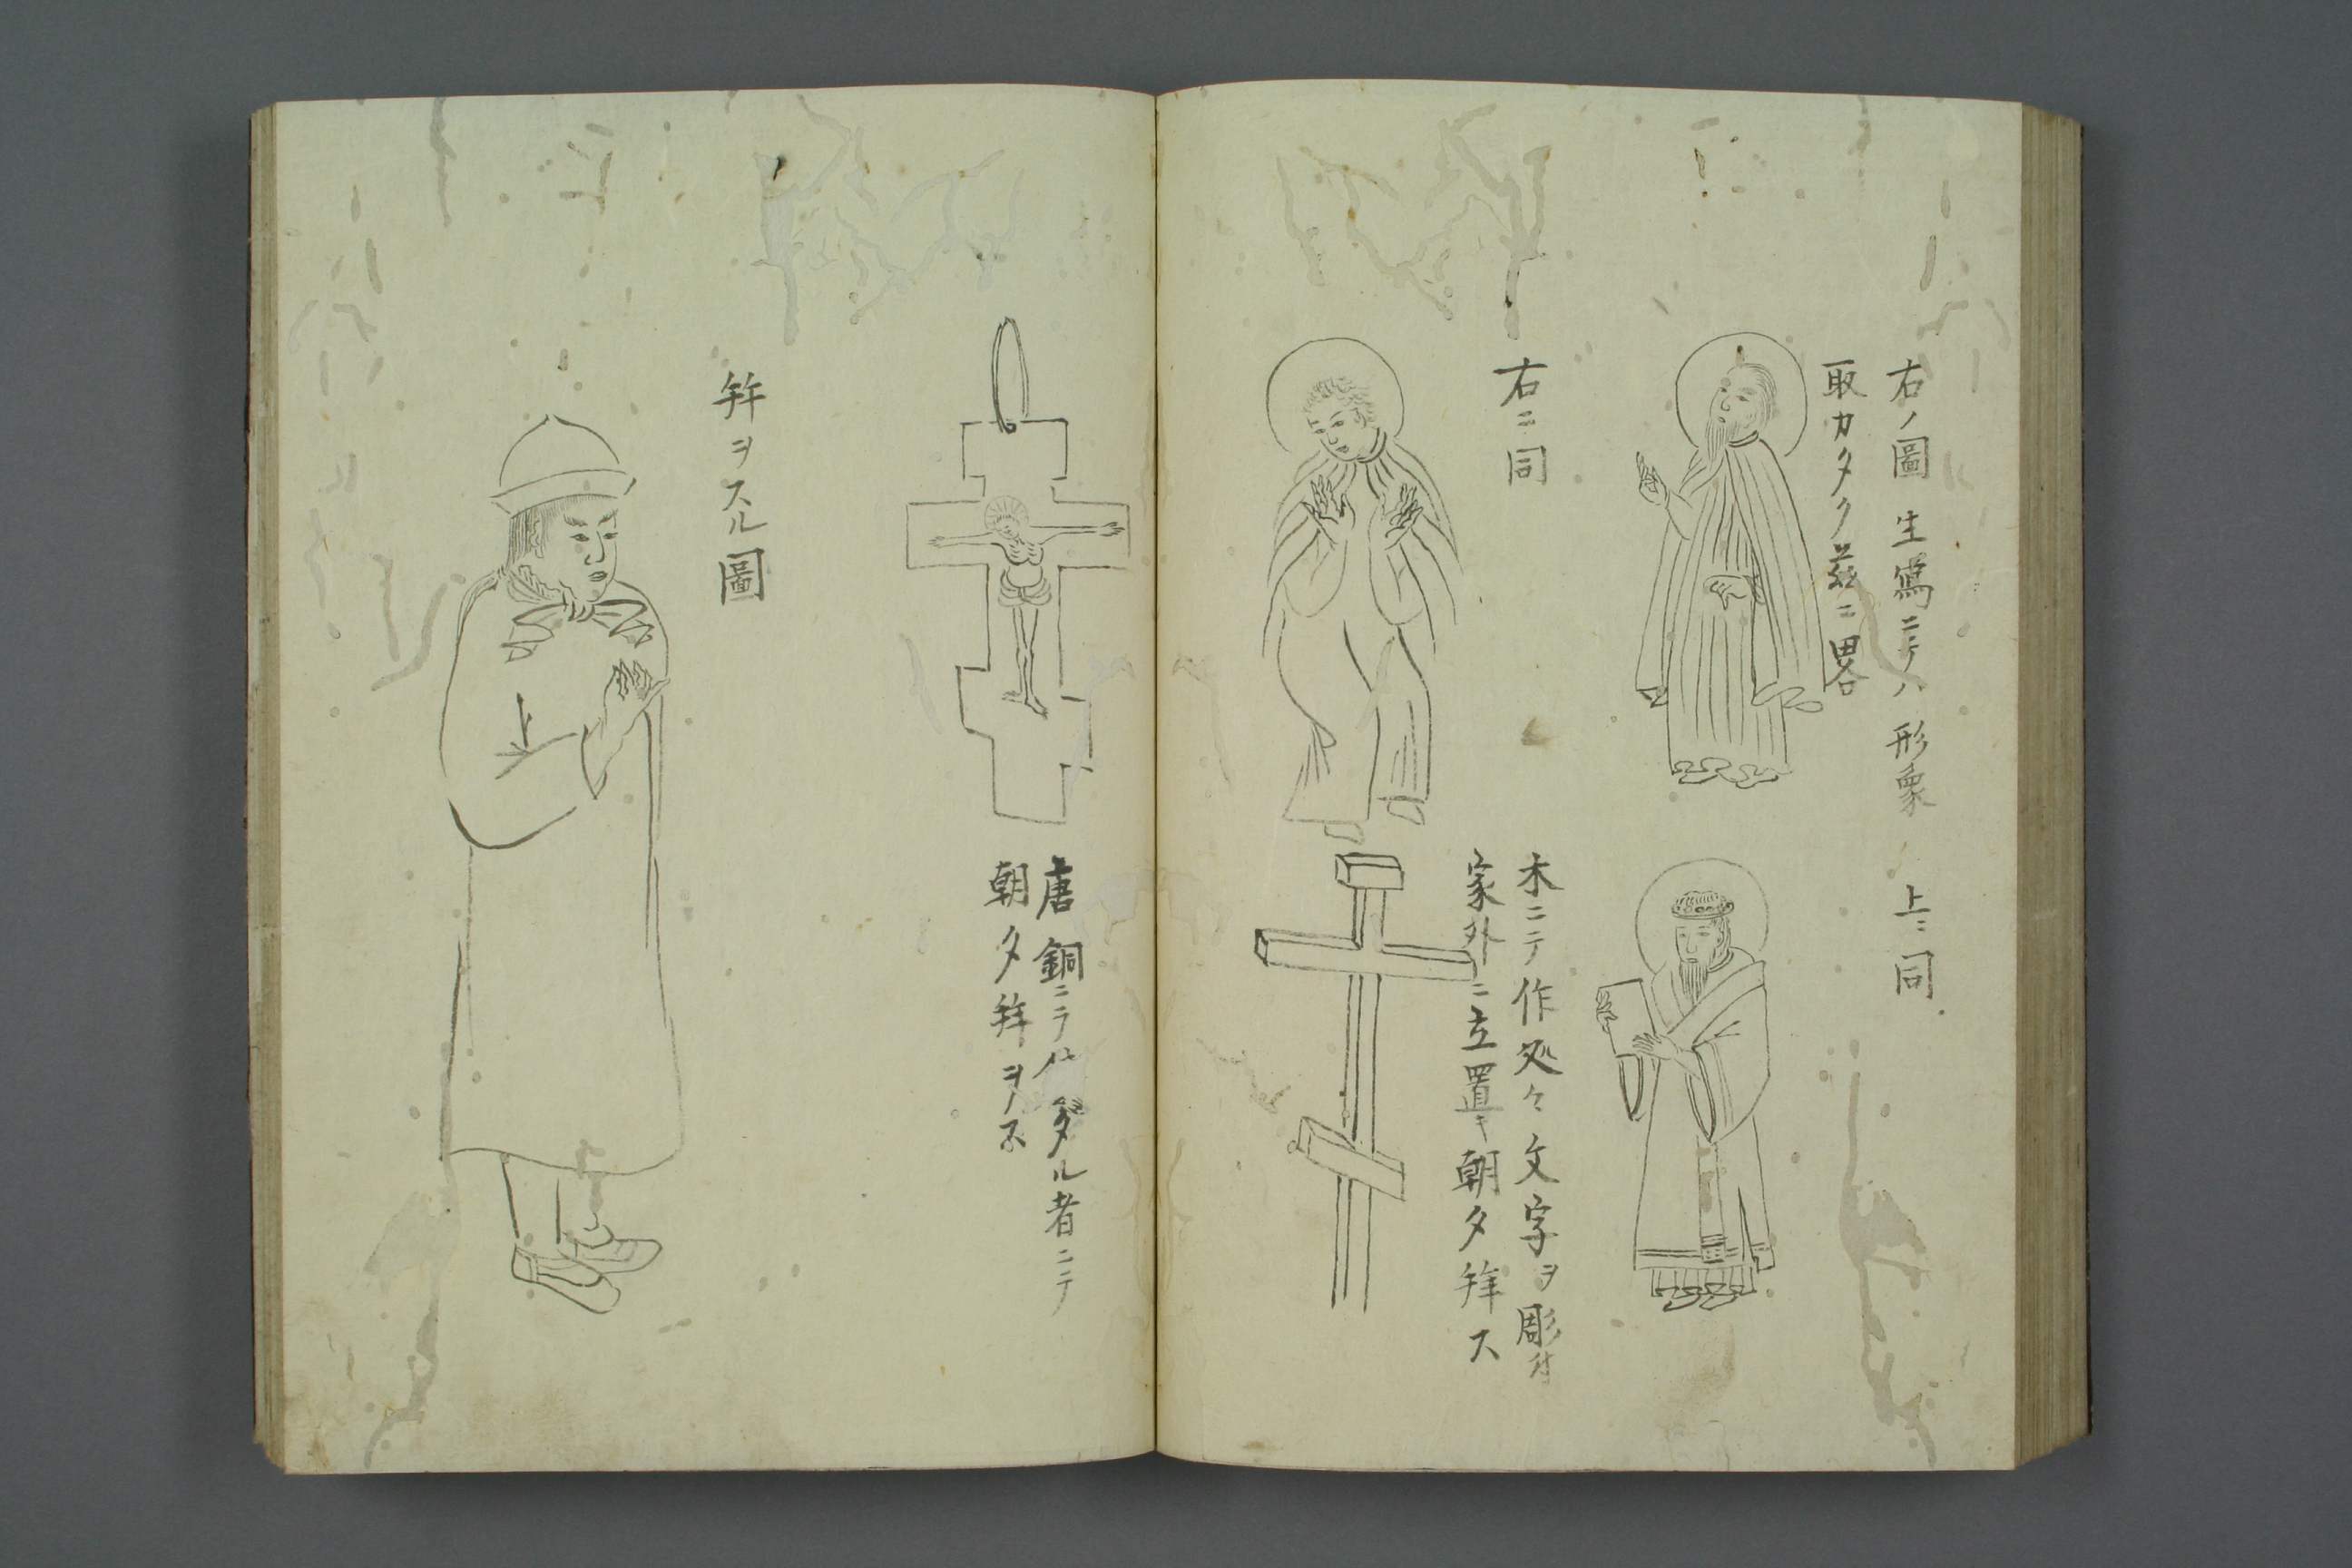 右ノ圖生寫ニテハ形象
取カタク茲ニ畧
上ニ同
右ニ同
木ニテ作処々文字ヲ彫付
家外ニ立置キ朝夕拜ス
唐銅ニテ仕タル者ニテ
朝夕拜ヲス
拜ヲスル圖